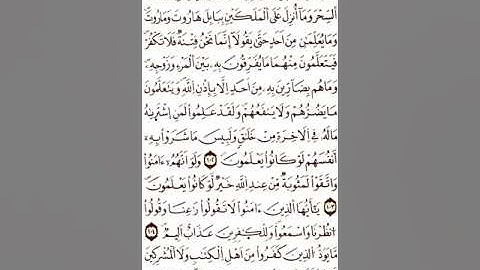 ٱلسِّحْرَ وَمَآ أُنزِلَ عَلَى ٱلْمَلَكَيْنِ بِبَابِلَ هَٰرُوتَ وَمَٰرُوتَ
وَمَا يُعَلِّمَانِ مِنْ أَحَدٍ حَتَّىٰ يَقُولَآ إِنَّمَا نَحْنُ فِتْنَةٌ فَلَا تَكْفُرْ
فَيَتَعَلَّمُونَ مِنْهُمَا مَا يُفَرِّقُونَ بِهِۦ بَيْنَ ٱلْمَرْءِ وَزَوْجِهِۦ
وَمَا هُم بِضَآرِّينَ بِهِۦ مِنْ أَحَدٍ إِلَّا بِإِذْنِ ٱللَّهِ وَيَتَعَلَّمُونَ
مَا يَضُرُّهُمْ وَلَا يَنفَعُهُمْ وَلَقَدْ عَلِمُوا۟ لَمَنِ ٱشْتَرَىٰهُ
مَا لَهُۥ فِى ٱلْءَاخِرَةِ مِنْ خَلَٰقٍ وَلَبِئْسَ مَا شَرَوْا۟ بِهِۦٓ
أَنفُسَهُمْ لَوْ كَانُوا۟ يَعْلَمُونَ ١٠٢ وَلَوْ أَنَّهُمْ ءَامَنُوا۟
وَٱتَّقَوْا۟ لَمَثُوبَةٌ مِّنْ عِندِ ٱللَّهِ خَيْرٌ لَّوْ كَانُوا۟ يَعْلَمُونَ
١٠٣ يَٰٓأَيُّهَا ٱلَّذِينَ ءَامَنُوا۟ لَا تَقُولُوا۟ رَٰعِنَا وَقُولُوا۟
ٱنظُرْنَا وَٱسْمَعُوا۟ وَلِلْكَٰفِرِينَ عَذَابٌ أَلِيمٌ ١٠٤
مَّا يَوَدُّ ٱلَّذِينَ كَفَرُوا۟ مِنْ أَهْلِ ٱلْكِتَٰبِ وَلَا ٱلْمُشْرِكِينَ